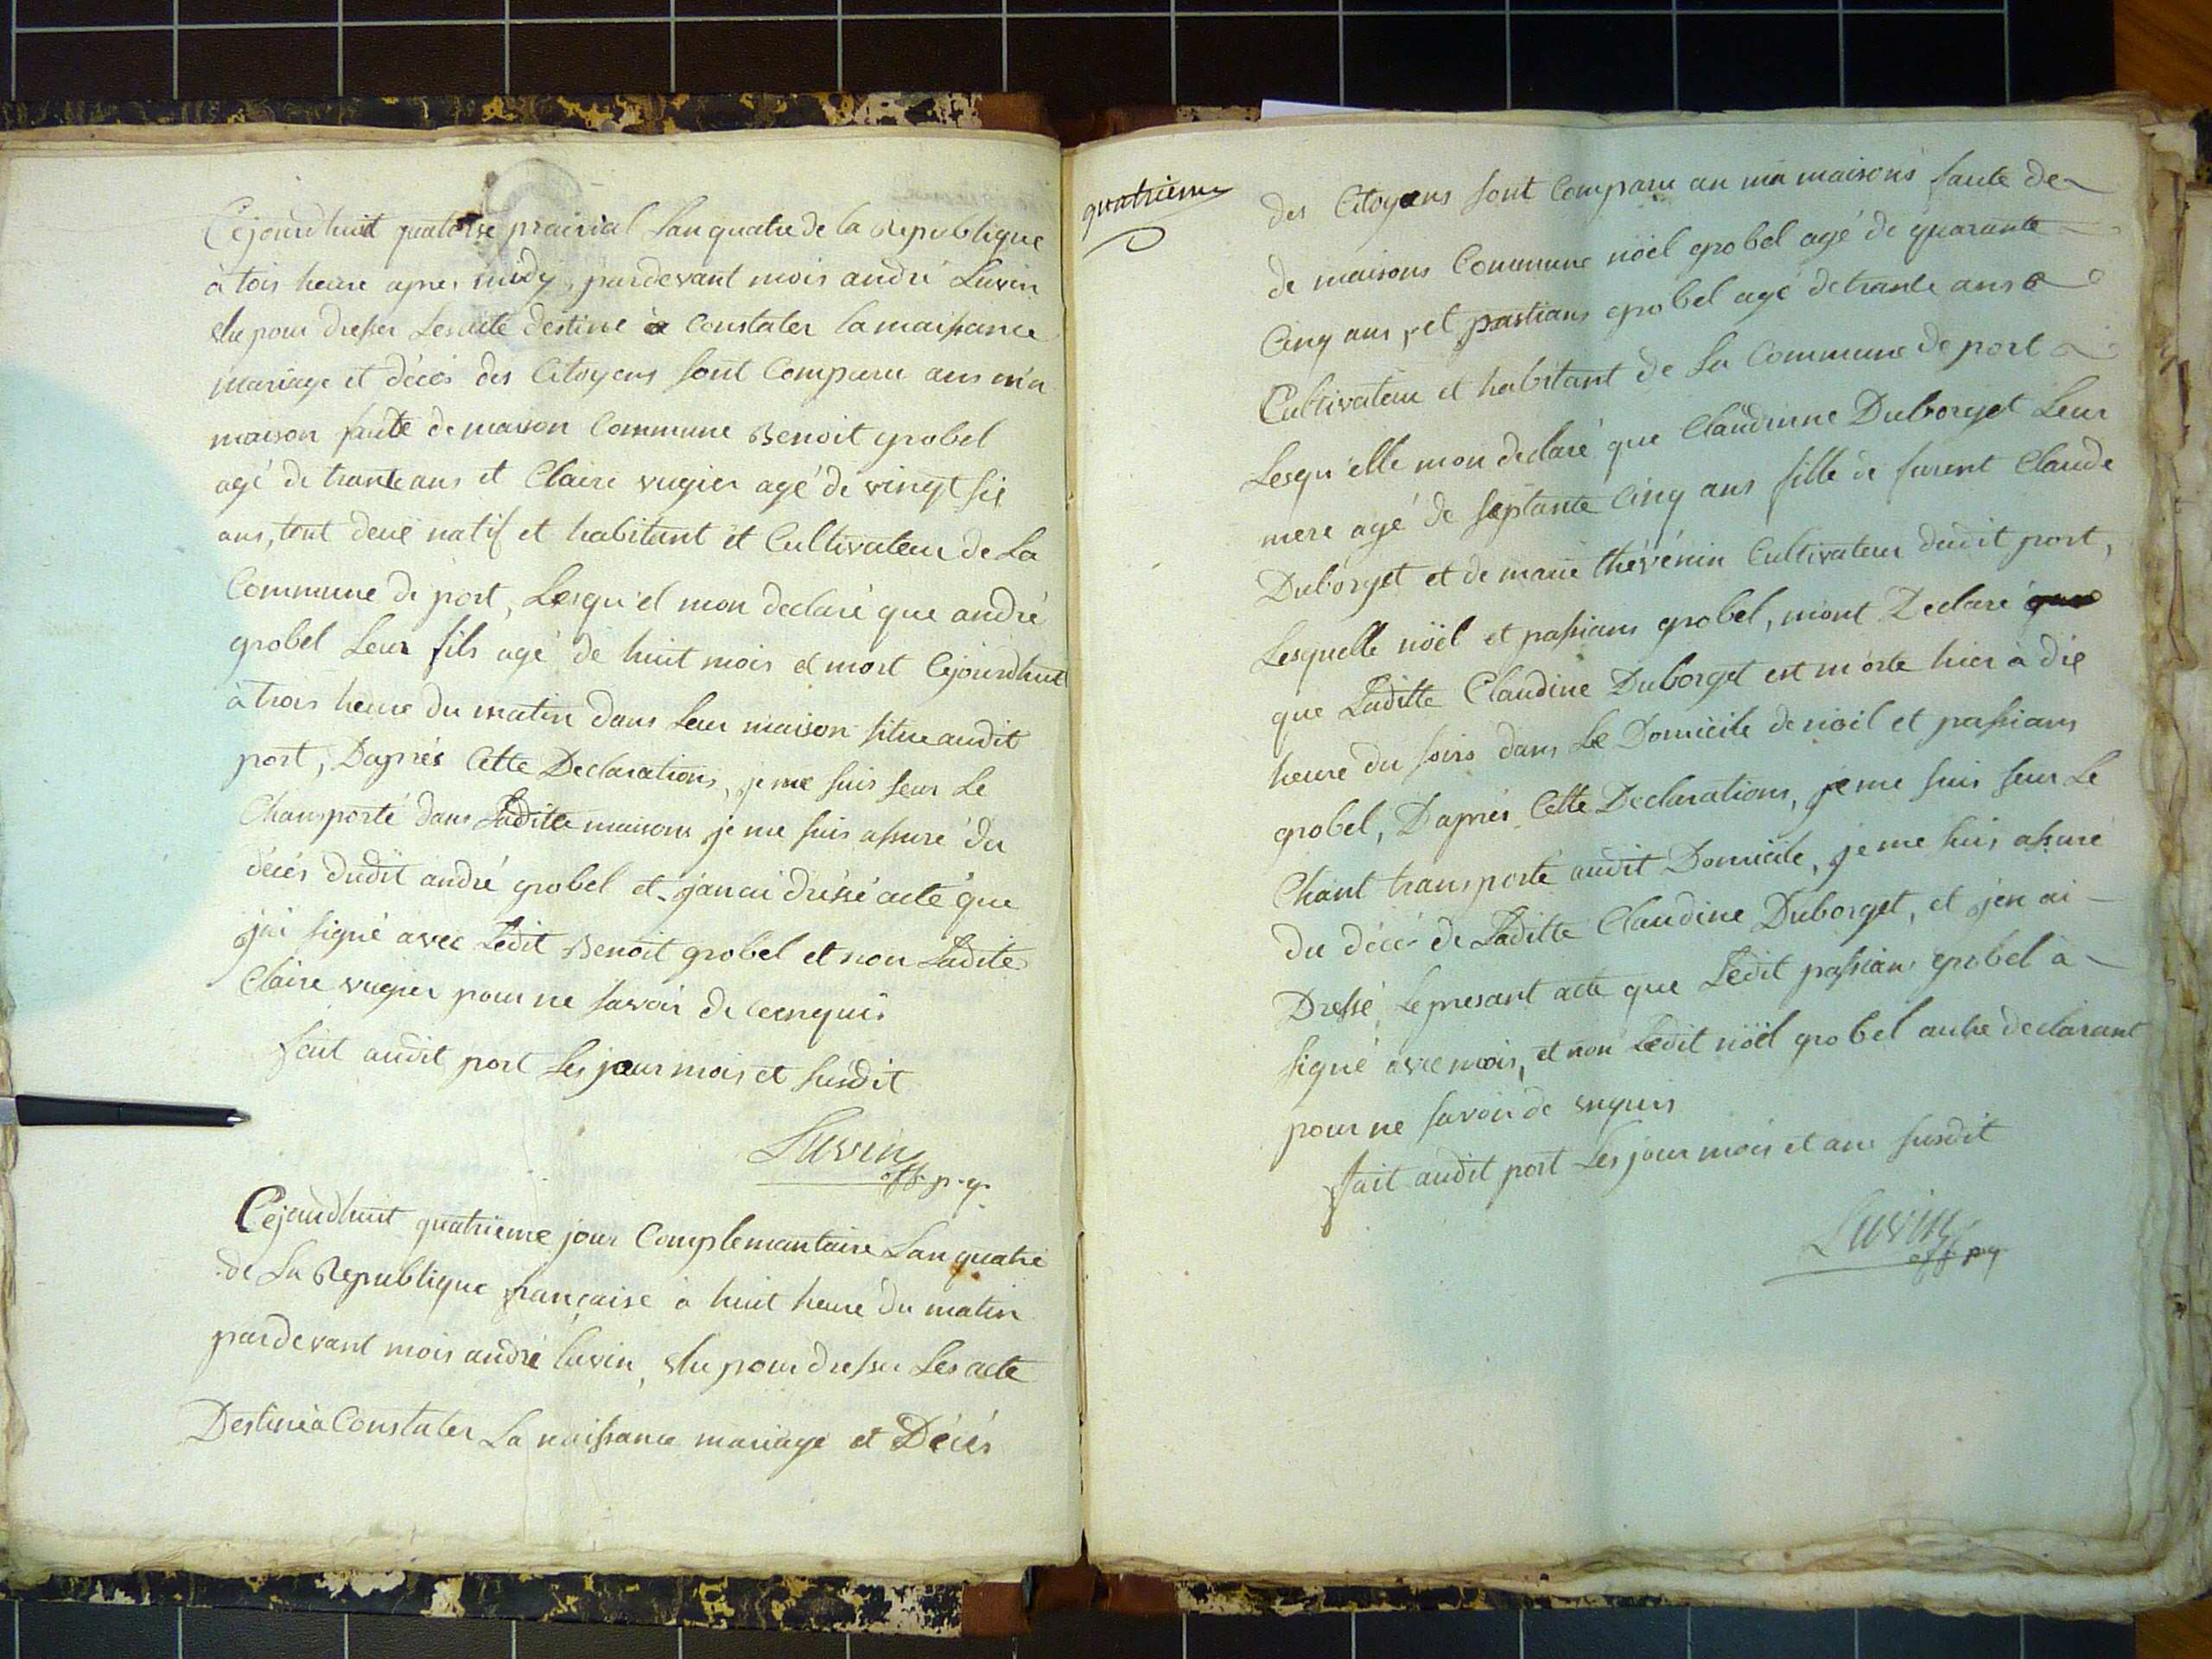 Cejourdhuit quatorse prairial Lan quatre de la Republique
à tois heure apres midy, pardevant mois andré Luvin
elu pour dresser Lesacte destiné à Constater la maissance
mariage et décés des Citoyens sont Comparu ans m'a
maison faute de maison Commune Benoit grobel
agé de trante ans et Claire vugier agé de vingt six
ans, tout deux natif et habitant et Cultivateur de La
Commune de port, Lesqu'el mon declaré que andré
grobel Leur fils agé de huit mois et mort Cejourdhuit
à trois heure du matin dans Leur maison situe audit
port, Daprés Cette Declarations, je me suis seur Le
Chansporté dans Laditte maisons je me suis assuré du
décés dudit andré grobel et janai dressé acté que
j'ai signé avec Ledit Benoit grobel et non Ladite
Claire vugier pour ne savoir de cenquis
fait audit port Les jour mois et susdit
Luvin
off. p. q.
Cejaudhuit quatrieme jour Complemantaire Lan quatre
de La Republique française à huit heure du matin
pardevant mois andré luvin, elu pour dresser Les acte
Destiné à Constater La naissance mariage et Décés
quatrieme
des Citoyens sont Comparu an ma maisons faute de
de maisons Commune nöel grobel agé de quarante
Cinq ans, et pastians grobel agé de trante ans
Cultivateur et habitant de La Commune de port
Lesqu'elle mon declaré que Claudinne Duborget Leur
mere agé de septante Cinq ans fille de furent Claude
Duborget et de marie thévénin Cultivateur dudit port,
Lesquelle nöel et passians grobel, mont Declaré que
que Laditte Claudine Duborget est morte hier à dix
heure du soirs dans Le Domicile de nöel et passians
grobel, Daprés Cette Declarations, je me suis seur Le
Chant transporté audit Domicile, je me suis assuré
du décé de Laditte Claudine Duborget, et j'en ai
Dressé Le presant acte que Ledit passians grobel à
signé avec mois, et non Ledit nöel grobel autre declarant
pour ne savoir de enquis
fait audit port Les jour mois et ans susdit
Luvin
off p q